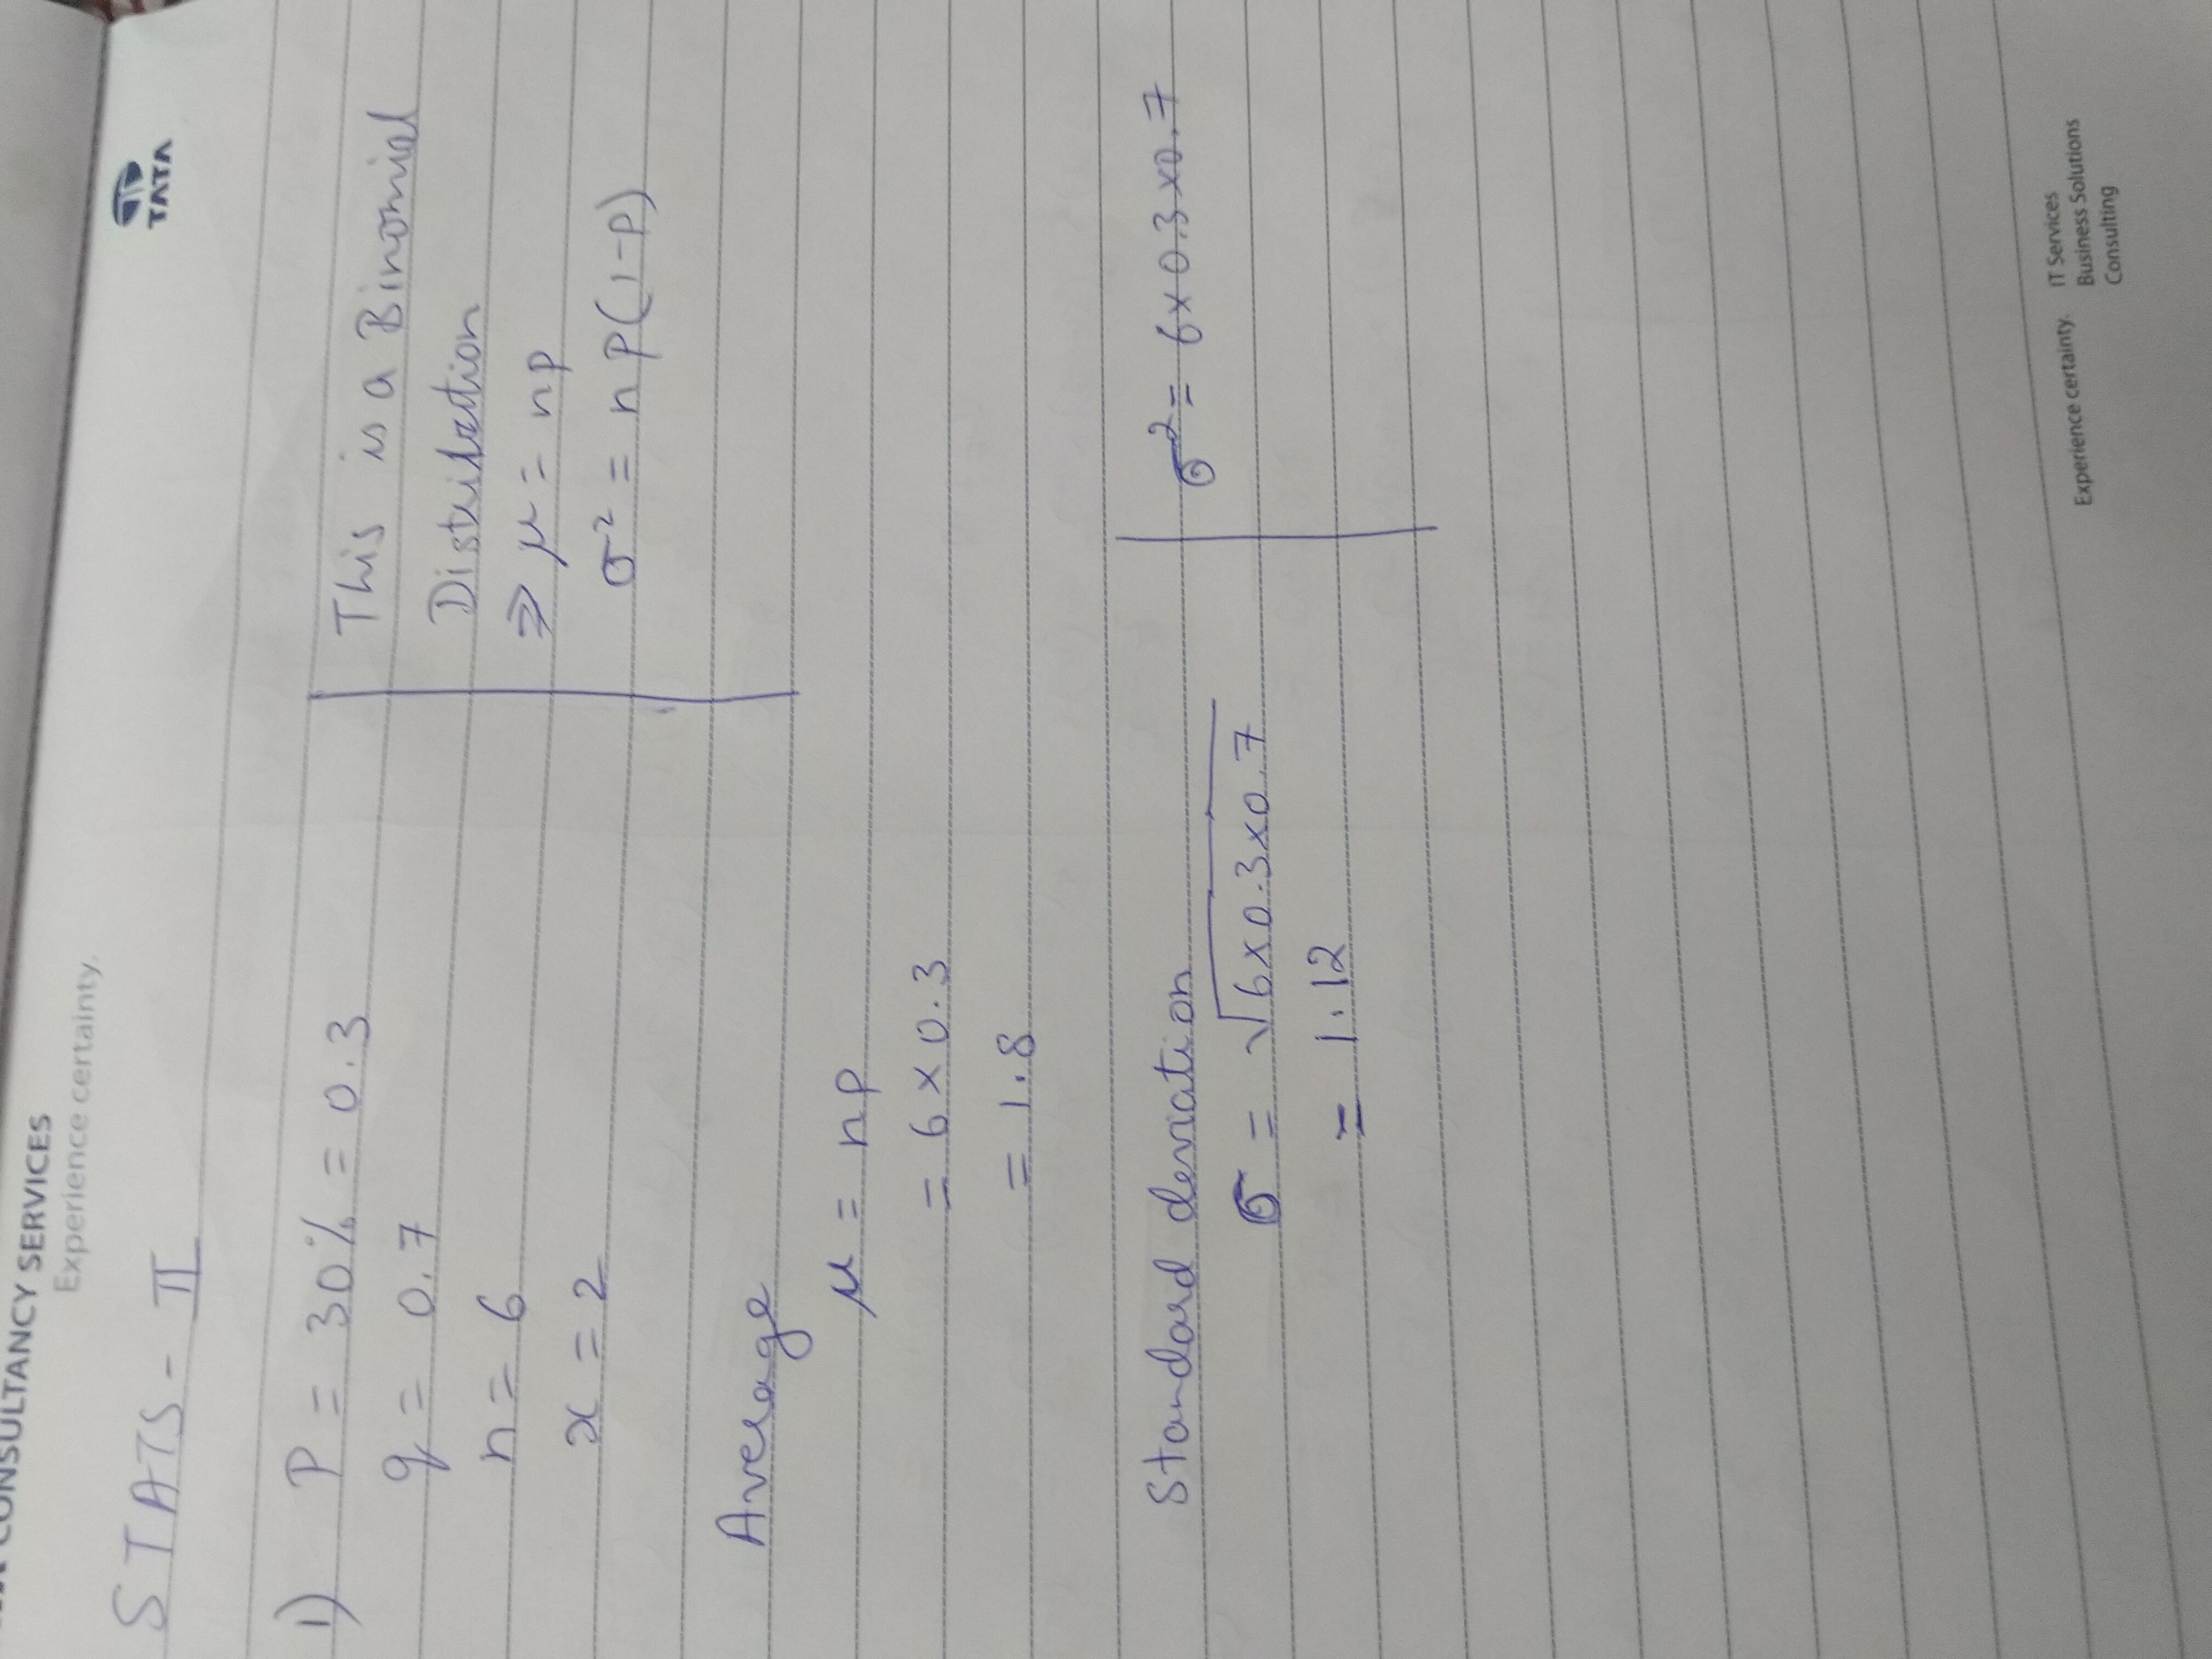 CONSULTANCY SERVICES
Experience certainty.
TATA
STATS - II
1) P = 30% = 0.3
q = 0.7
n = 6
x = 2
This is a Binomial
Distribution
⇒ μ = np
σ² = np(1-p)
Average
μ = np
= 6 × 0.3
= 1.8
Standard deviation
σ = √6×0.3×0.7
= 1.12
σ² = 6×0.3×0.7
Experience certainty.
IT Services
Business Solutions
Consulting